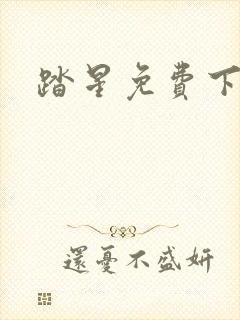 踏星免費下
還憂不盛妍